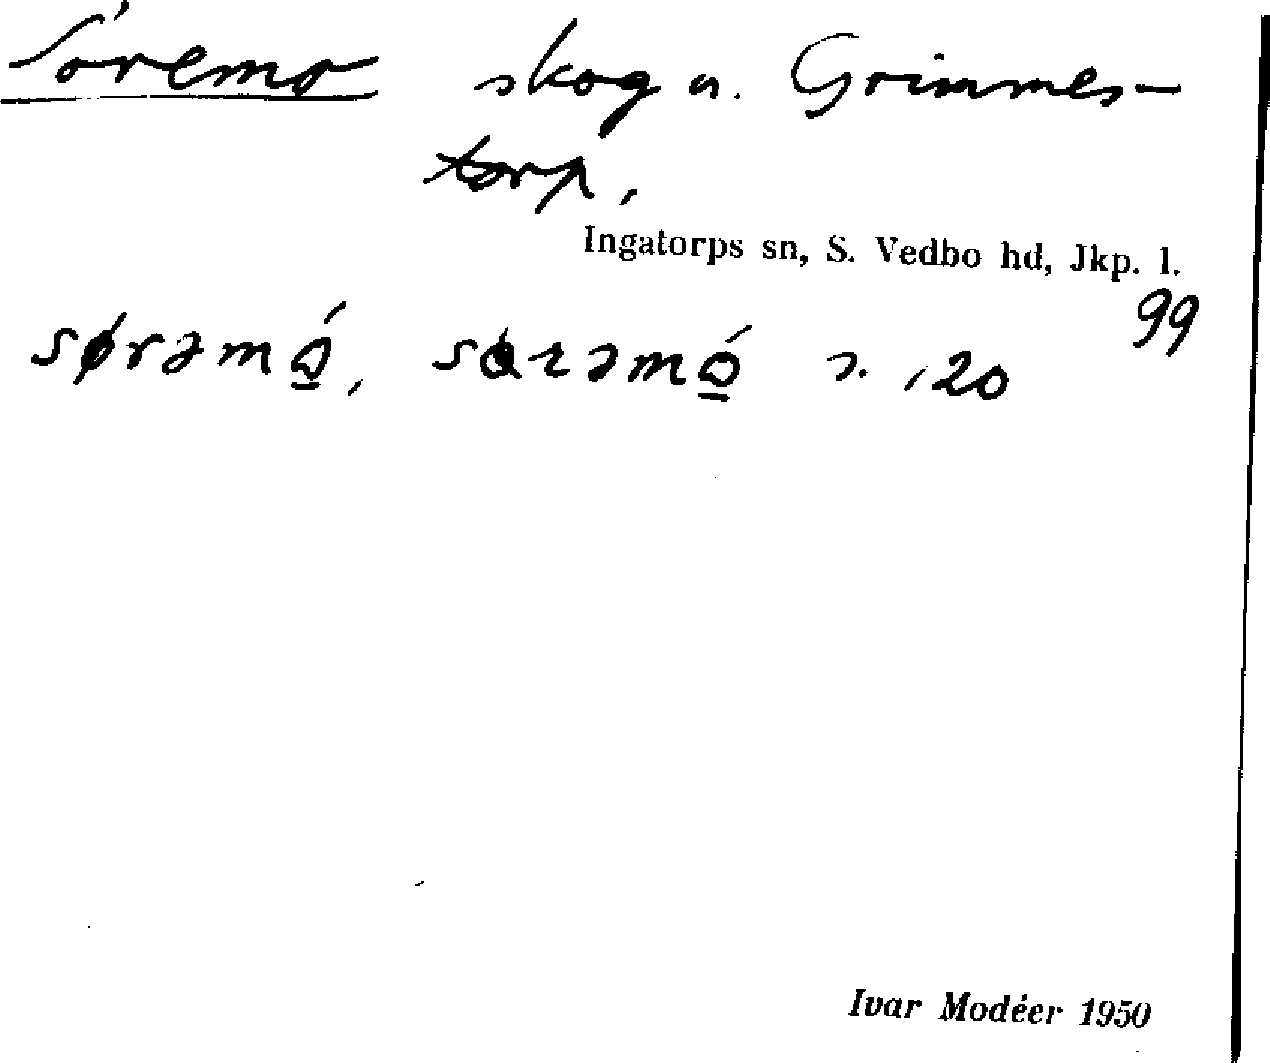 Söremo skog u. Grimmes-
torp.
Ingatorps sn, S. Vedbo hd, Jkp. l.
99
sørəmó̱, sɑrəmó̱ s. 120
Ivar Modéer 1950